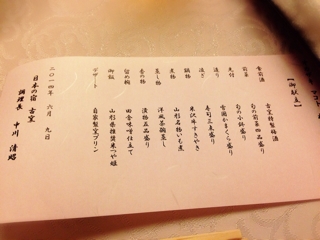 【御献立】
食前酒 古窯特製梅酒
前菜 旬の前菜四品盛り
先付 旬の小鉢盛り
造り 雪国かまくら盛り
凌ぎ 寿司三点盛り
鍋 米沢牛すきやき
煮物 山形名物いも煮
蒸し物 洋風茶碗蒸し
香の物 漬物五品盛り
留め椀 田舎味噌仕立て
御飯 山形県推奨米つや姫
デザート 自家製窯プリン
二〇一四年 六月 九日
日本の宿 古窯
調理長 中川